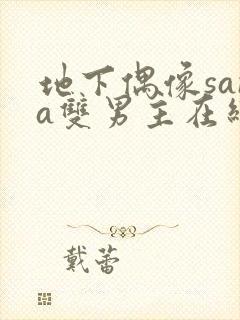 地下偶像sa
a雙男主在
戴蕾